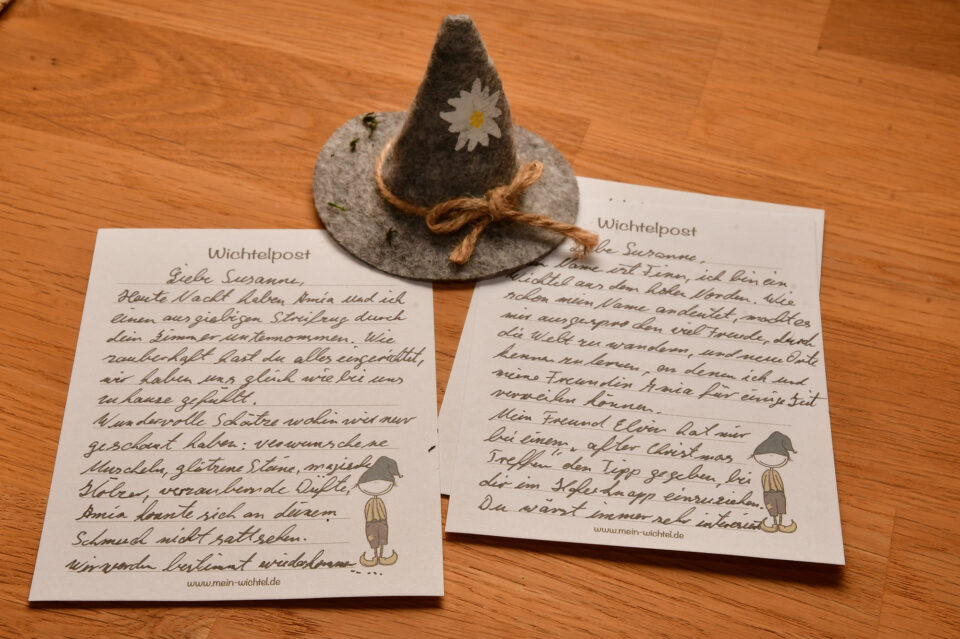 Wichtelpost
Liebe Susanne,
Heute Nacht haben Amia und ich
einen ausgiebigen Streifzug durch
dein Zimmer unternommen. Wie
zauberhaft hast du alles eingerichtet,
wir haben uns gleich wie bei uns
zuhause gefühlt.
Wundervolle Schätze wohin wir nur
geschaut haben: verwunschene
Muscheln, glitzerne Steine, magische
Hölzer, verzaubernde Düfte,
Amia konnte sich an deinem
Schmuck nicht sattsehen.
Wir werden bestimmt wiederkommen....
www.mein-wichtel.de
Wichtelpost
Liebe Susanne,
Name ist Finn, ich bin ein
Wichtel aus dem hohen Norden. Wie
schon mein Name andeutet, macht es
mir ausgesprochen viel Freude, durch
die Welt zu wandern, und neue Orte
kennen zu lernen, an denen ich und
meine Freundin Amia für einige Zeit
verweilen können.
Mein Freund Elvin hat mir
bei einem „after Christmas
Treffen" den Tipp gegeben, bei
dir im einzuziehen.
Du wärst immer sehr interessiert
www.mein-wichtel.de